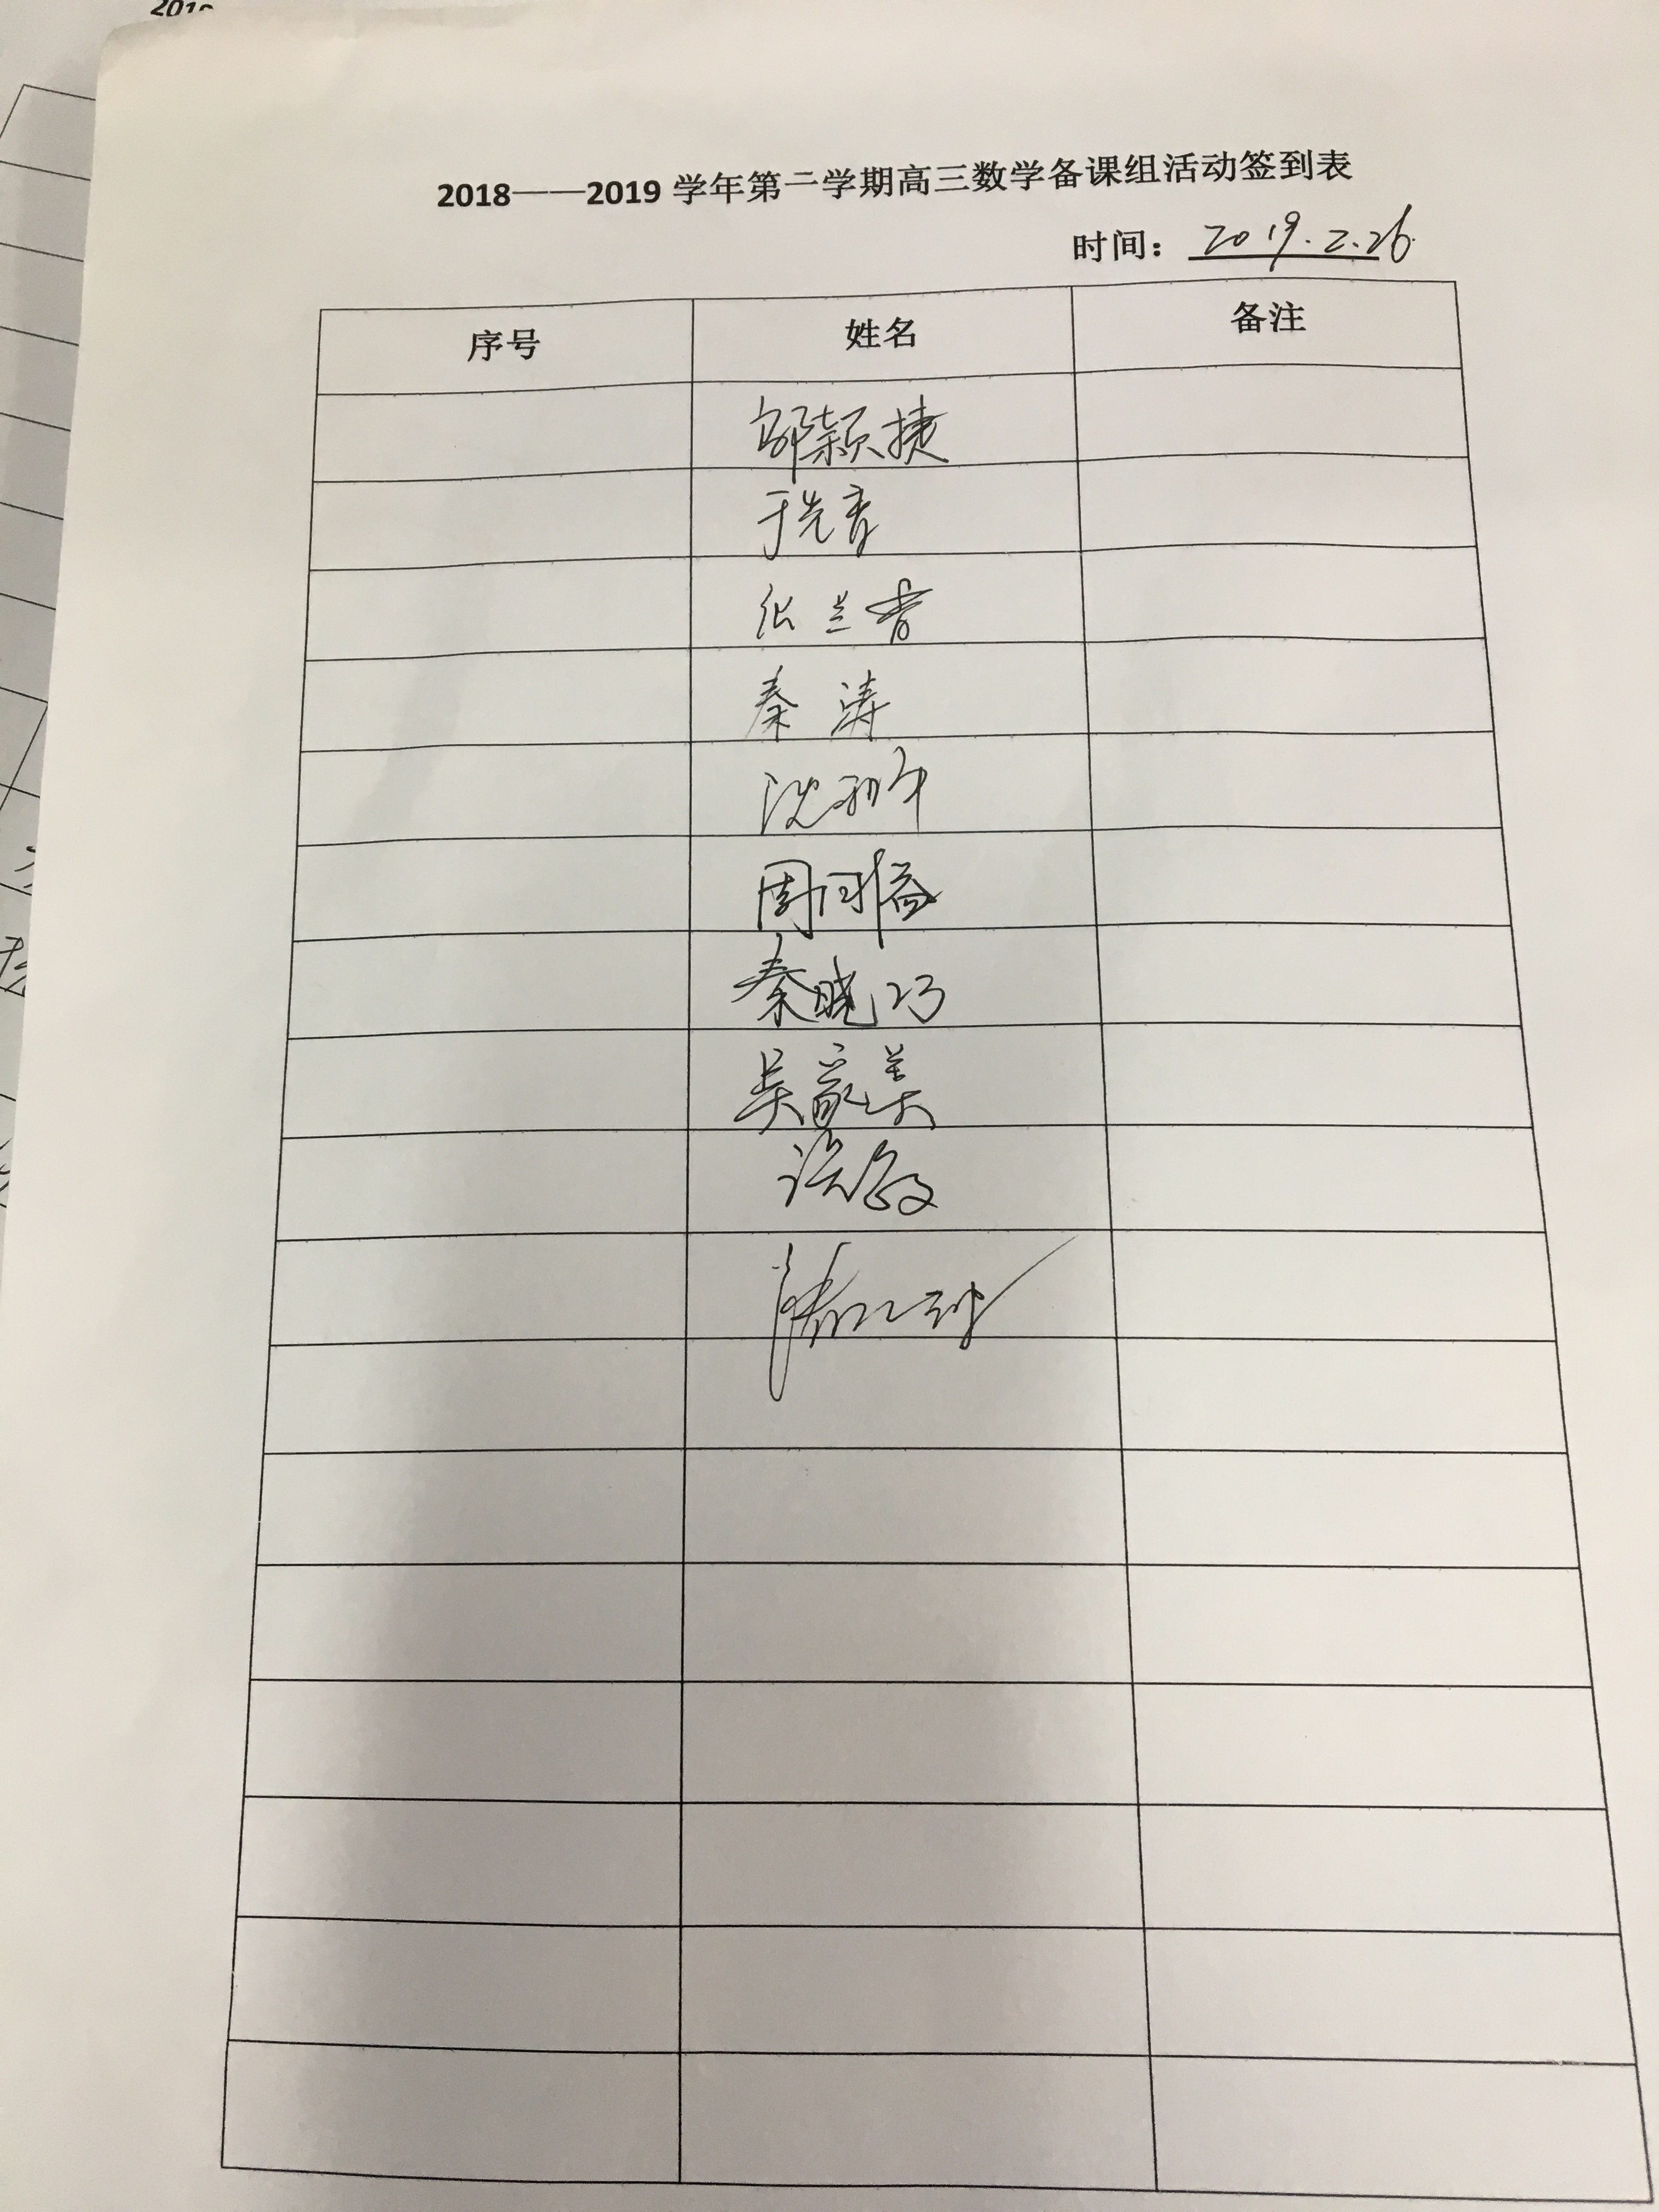 2018——2019 学年第二学期高三数学备课组活动签到表
时间：2019.2.26
序号 姓名 备注
邹颖捷
于先青
张兰香
秦 涛
沈和平
周国益
秦晓巧
吴家美
许敏